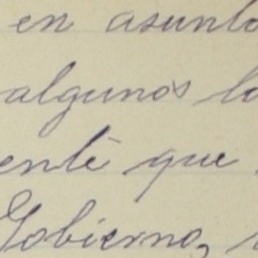 en asunto
algunos lo
ente que
Gobierno,